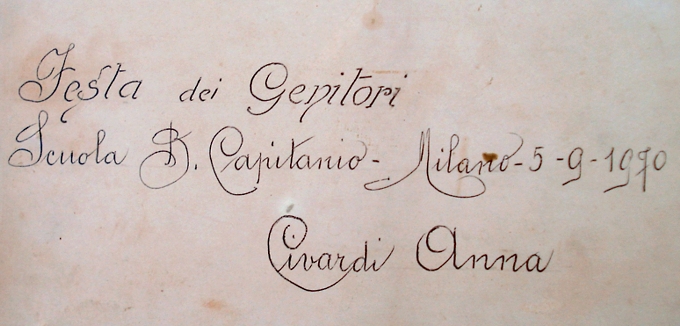 Festa dei Genitori
Scuola B. Capitanio - Milano - 5 - 9 - 1970
Civardi Anna